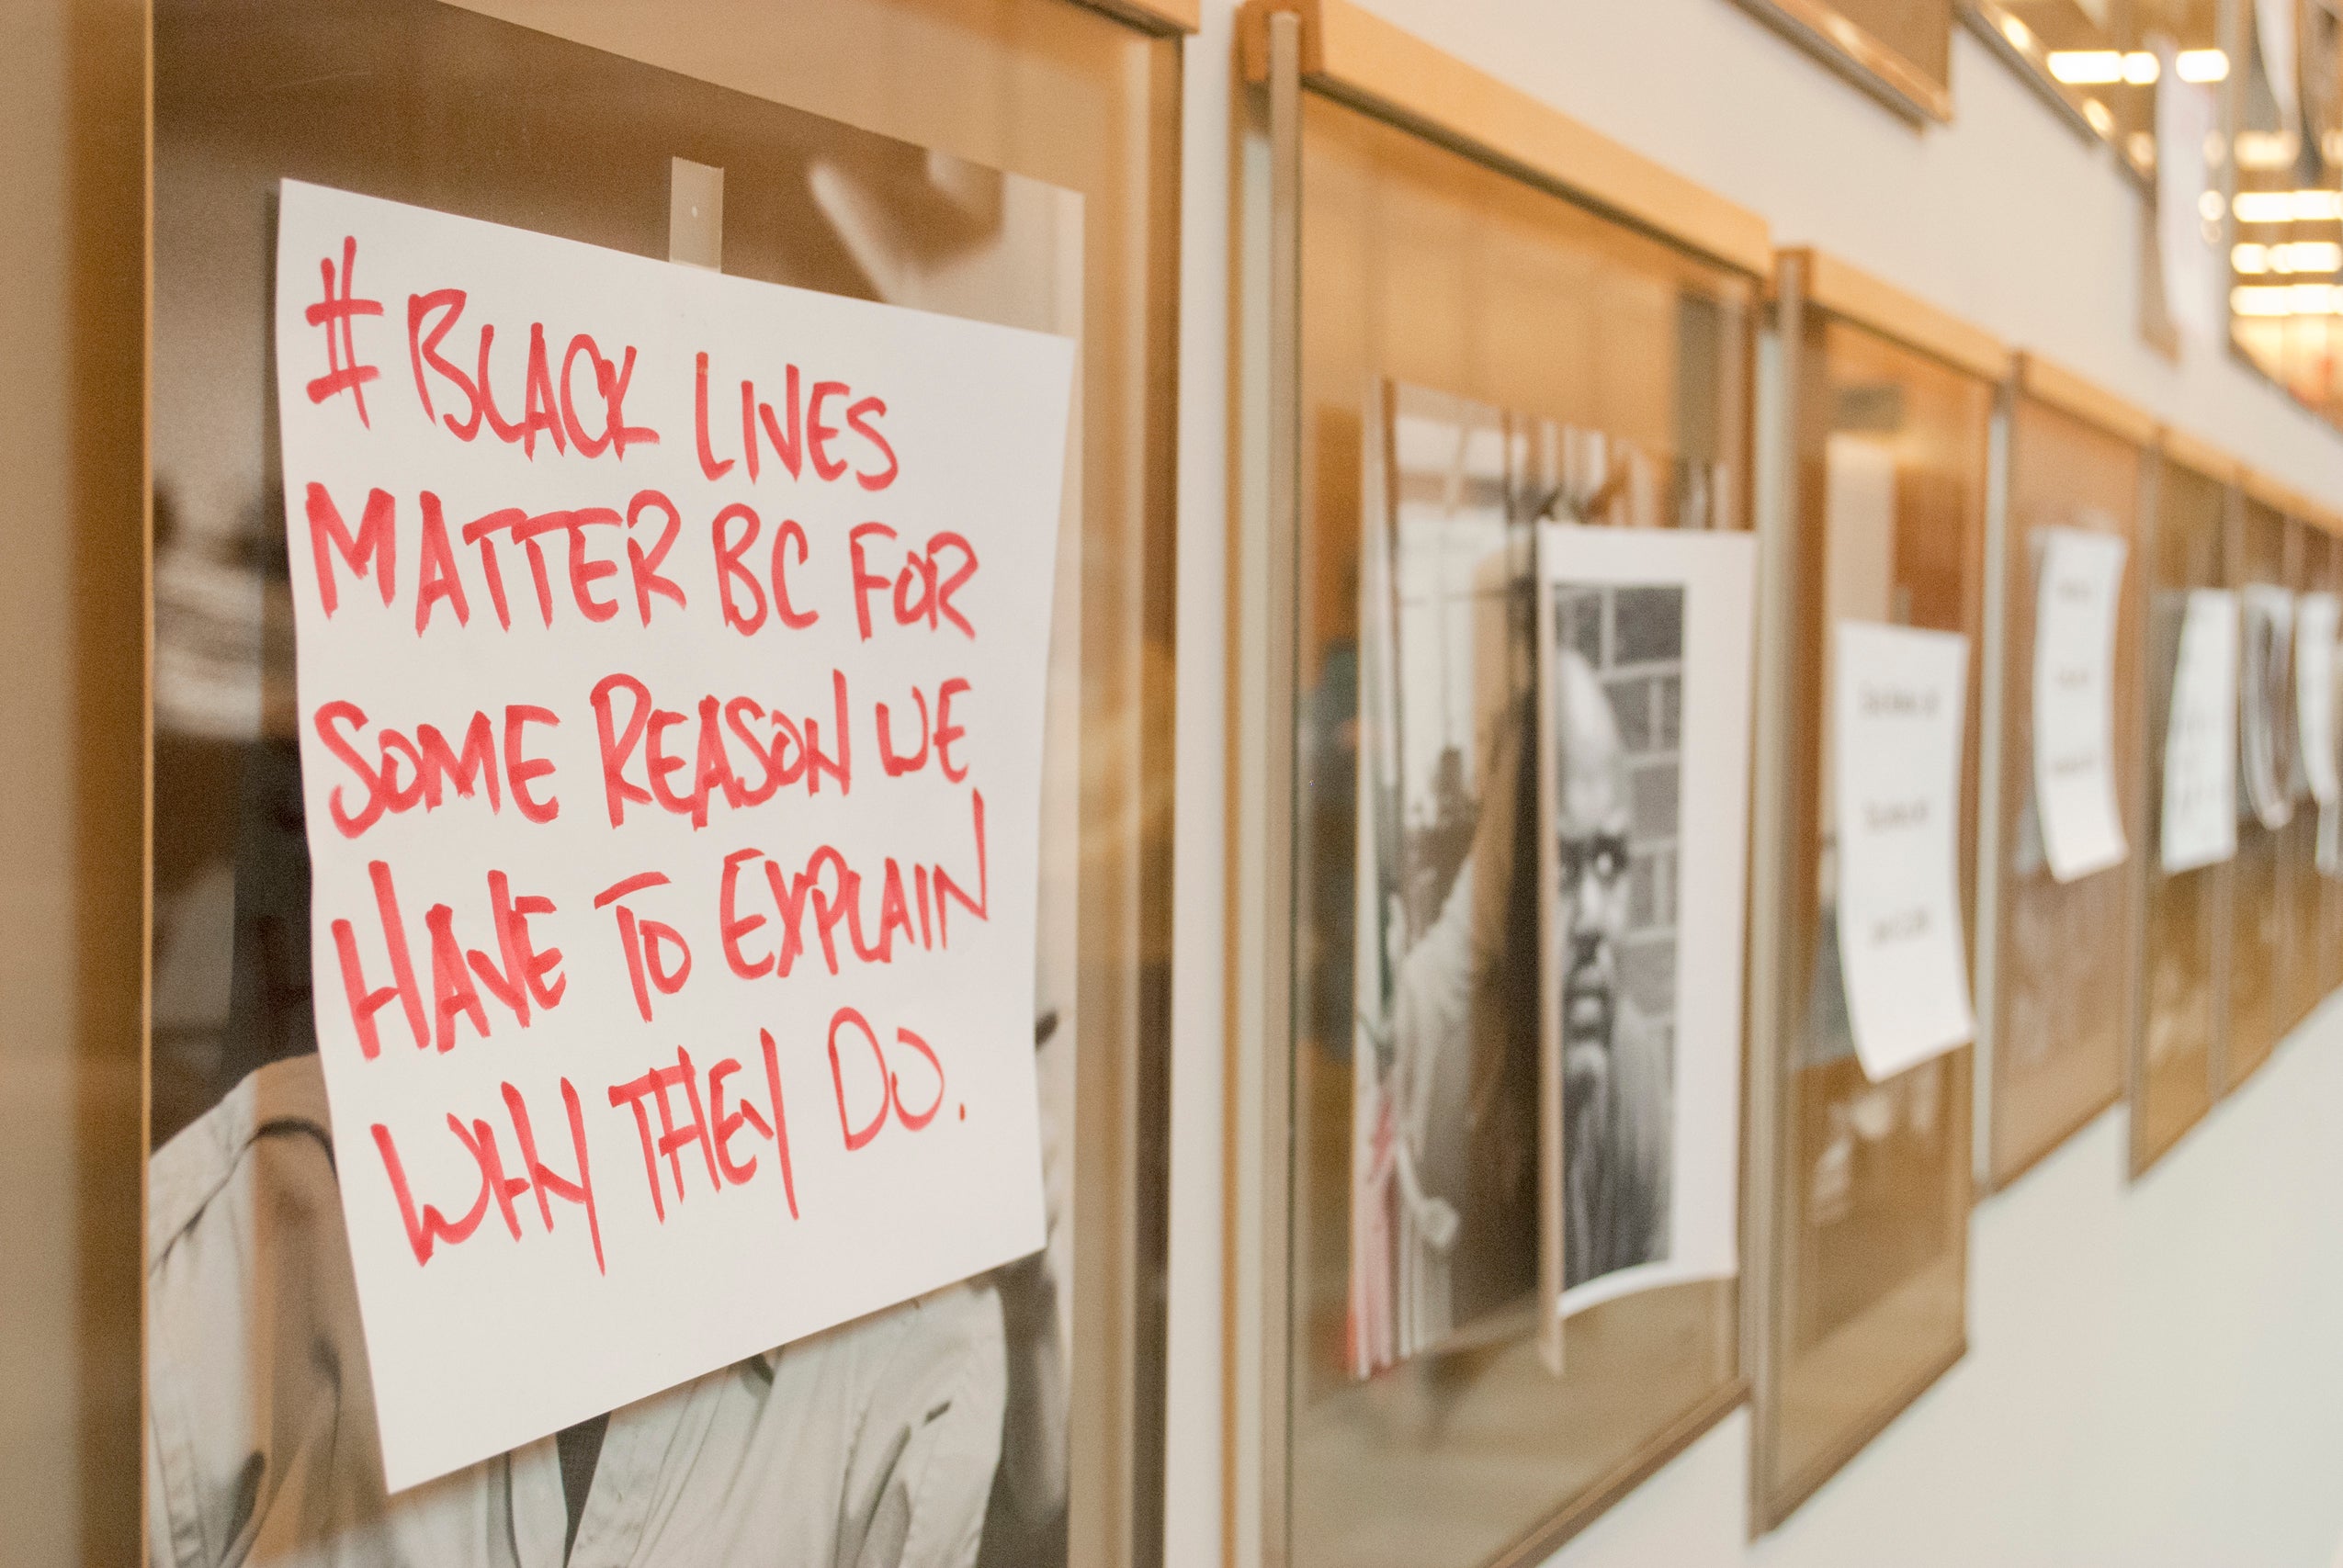 # BLACK LIVES
MATTER BC FOR
SOME REASON WE
HAVE TO EXPLAIN
WHY THEY DO.